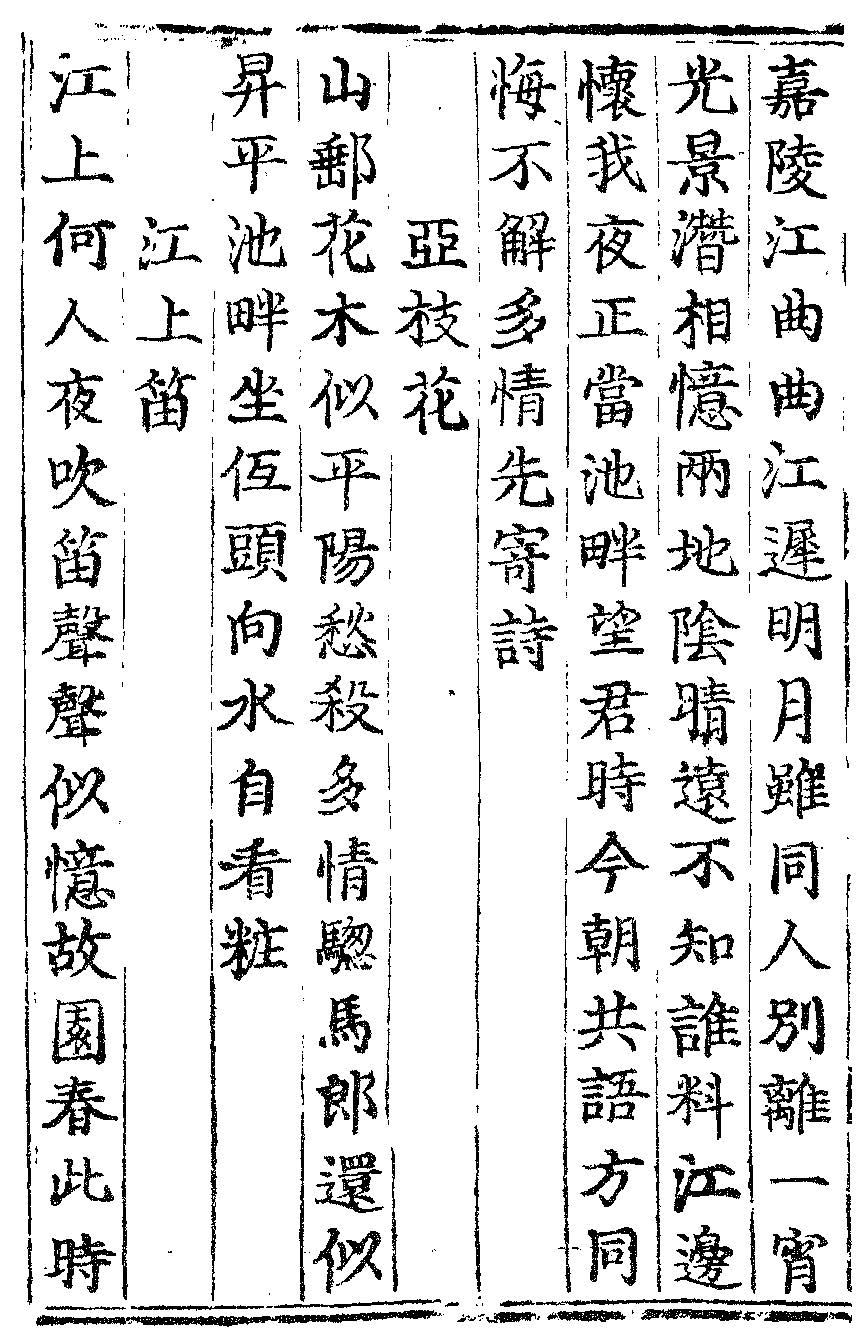 嘉陵江曲曲江遲明月雖同人別離一宵
光景潛相憶兩地陰晴遠不知誰料江邊
懷我夜正當池畔望君時今朝共語方同
悔不解多情先寄詩
亞枝花
山郵花木似平陽愁殺多情驄馬郎還似
昇平池畔坐低頭向水自看粧
江上笛
江上何人夜吹笛聲聲似憶故園春此時